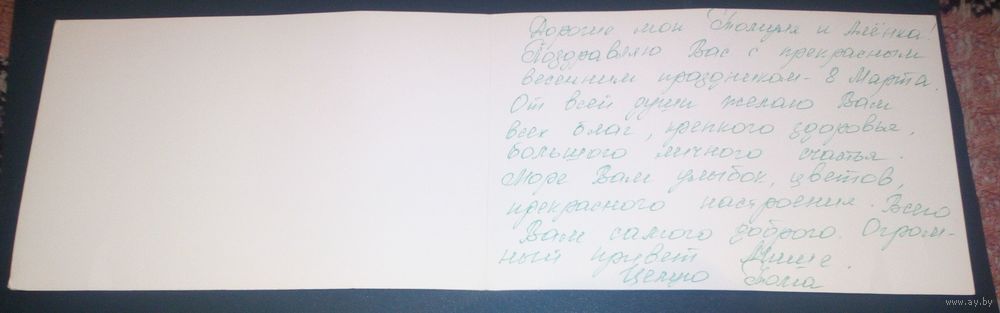 Дорогие мои и Алёнка!
Поздравляю Вас с прекрасным
весенним праздником - 8 Марта.
От всей души желаю Вам
всех благ, крепкого здоровья,
большого личного счастья.
Море Вам улыбок, цветов,
прекрасного настроения. Всего
Вам самого доброго. Огром-
ный привет Мише.
Целую
www.ay.by